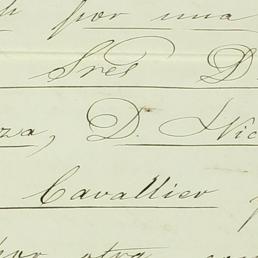 por una
Sres D.
za, D. Nic
Cavallier
por otra